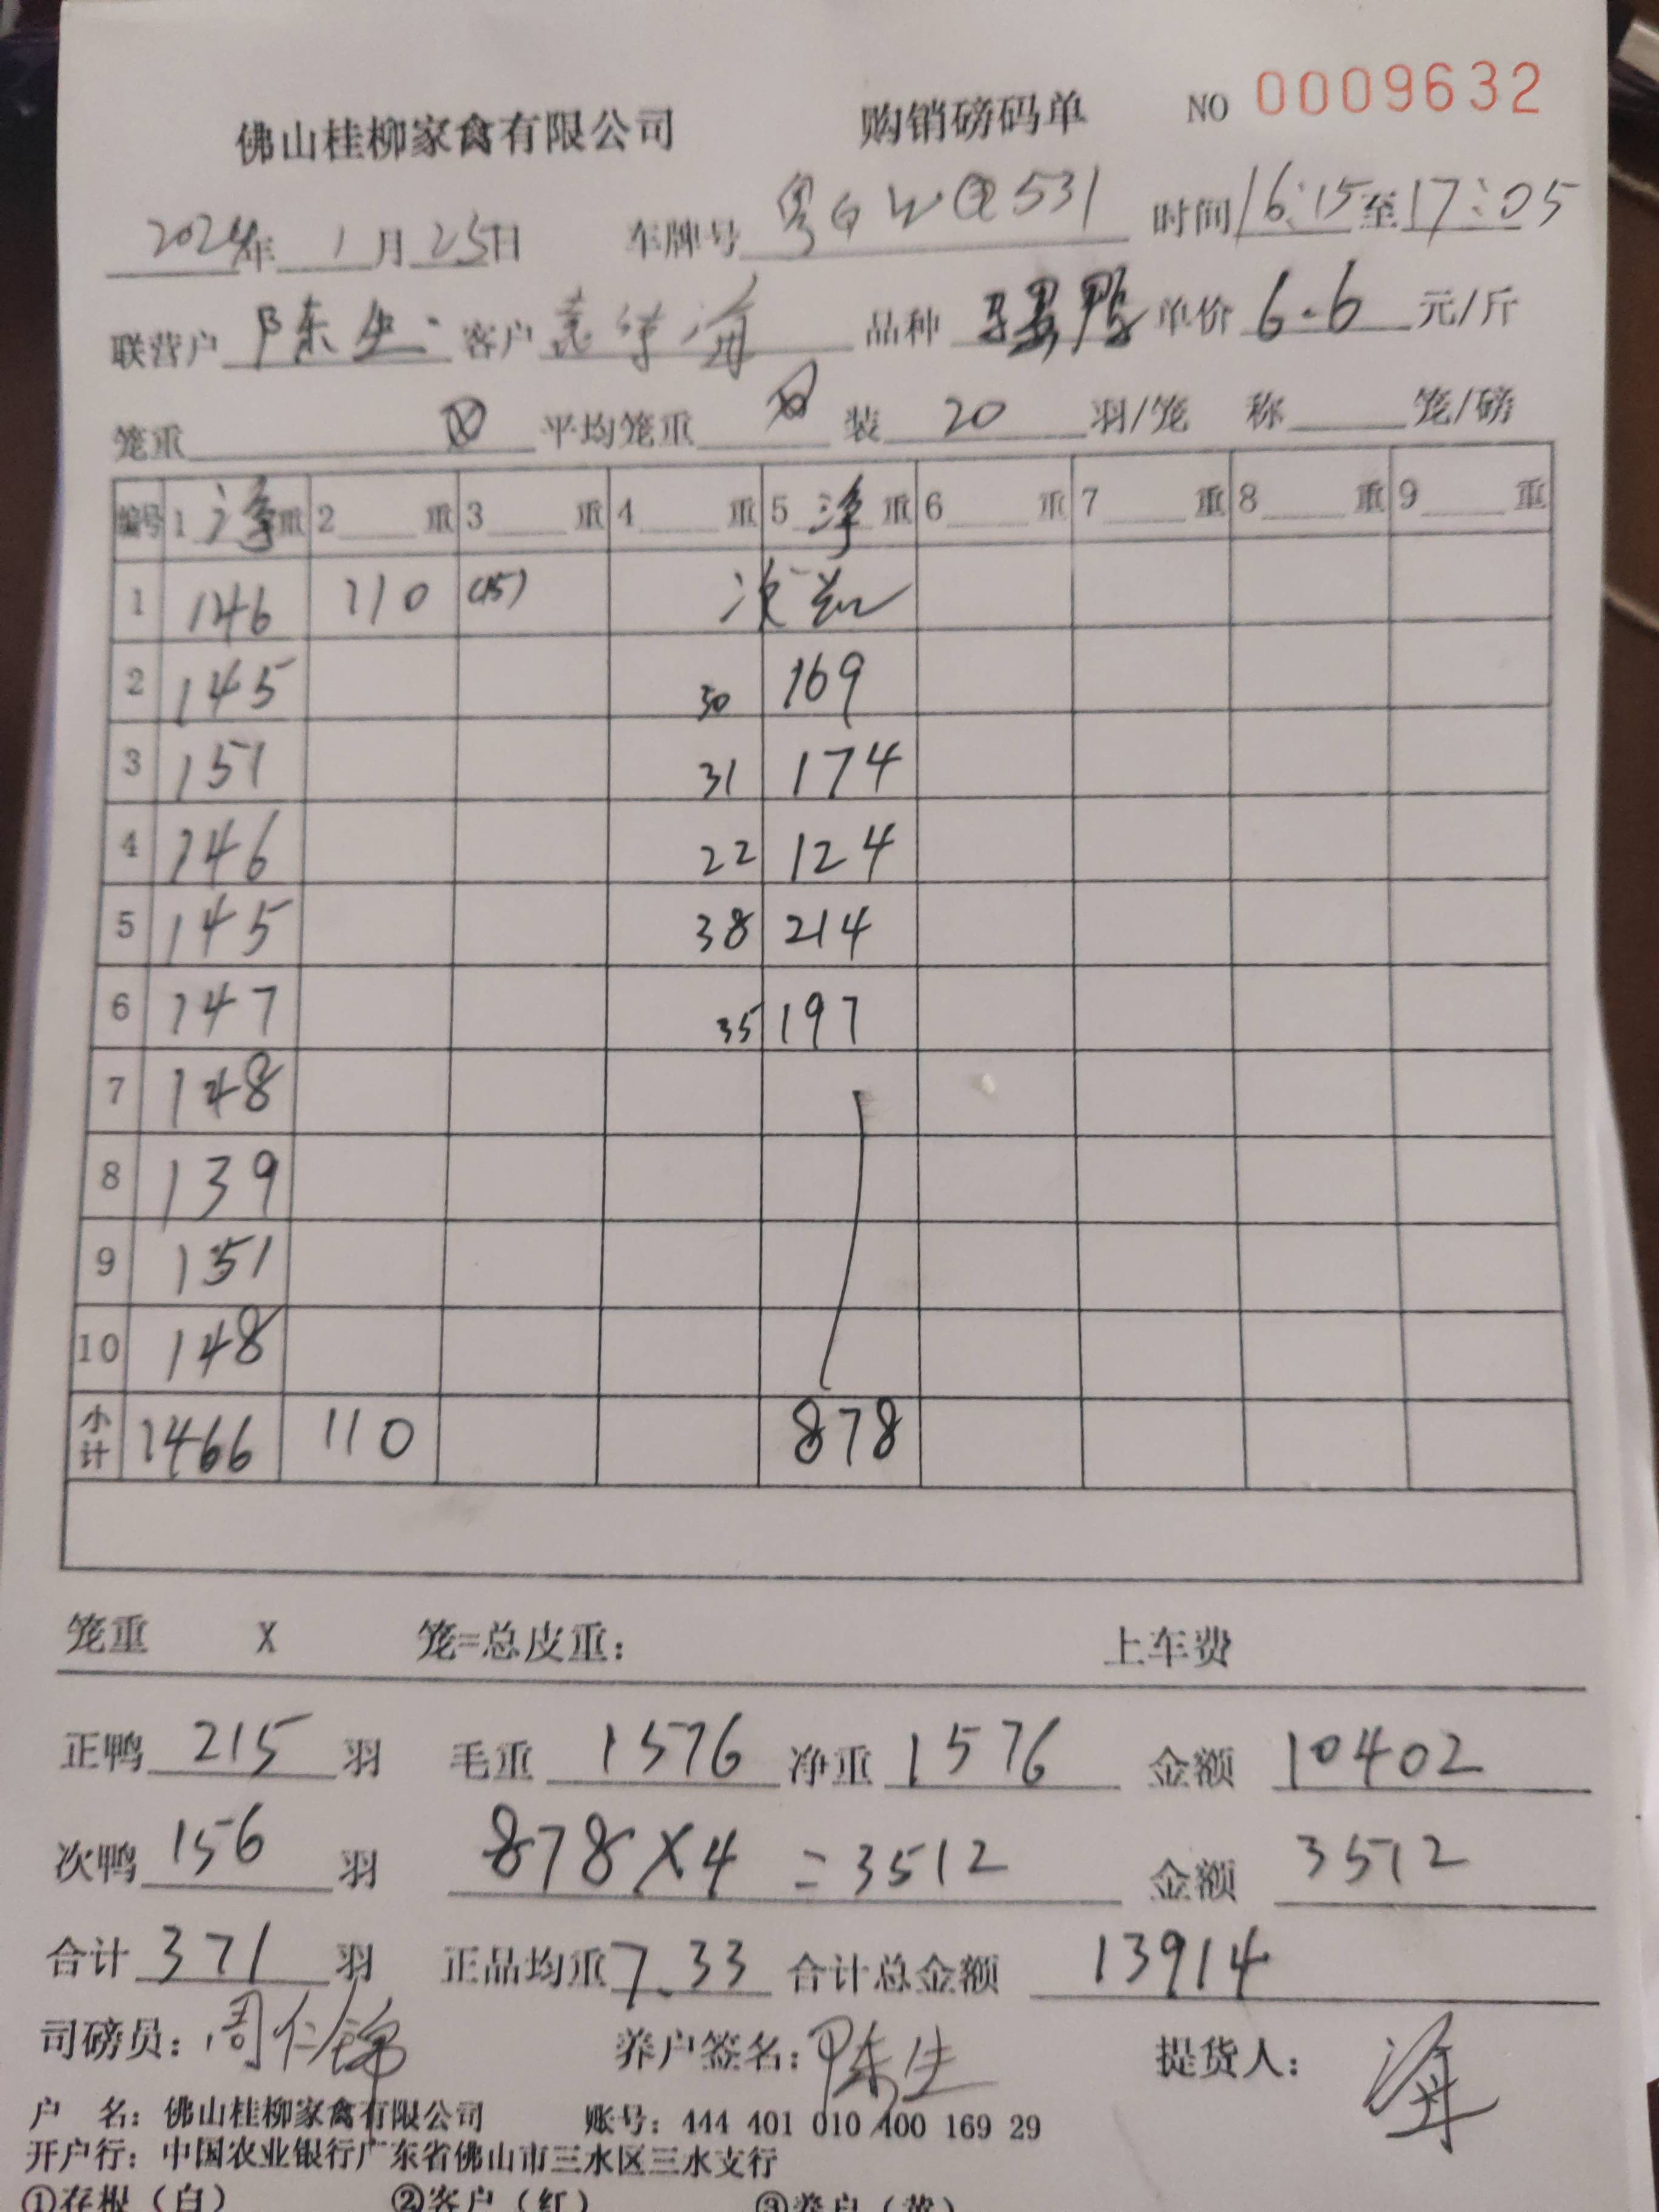 佛山桂柳家禽有限公司 购销磅码单 NO 0009632
2024年 1月25日 车牌号 粤 531 时间16:15至17:05
联营户 陈生 客户 海 品种 骡鸭 单价 6.6 元/斤
笼重 平均笼重 装 20 羽/笼 称 笼/磅
编号 1 净重 2 重 3 重 4 重 5 净重 6 重 7 重 8 重 9 重
1 146 110 (15) 次
2 145 30 169
3 151 31 174
4 146 22 124
5 145 38 214
6 147 35 197
7 148
8 139
9 151
10 148
小计 1466 110 878
笼重 X 笼=总皮重: 上车费
正鸭 215 羽 毛重 1576 净重 1576 金额 10402
次鸭 156 羽 878×4=3512 金额 3512
合计 371 羽 正品均重 7.33 合计总金额 13914
司磅员: 周仁锦 养户签名: 陈生 提货人: 海
户 名: 佛山桂柳家禽有限公司 账号: 444 401 010 400 169 29
开户行: 中国农业银行广东省佛山市三水区三水支行
①存根(白) ②客户(红) ③养户(黄)